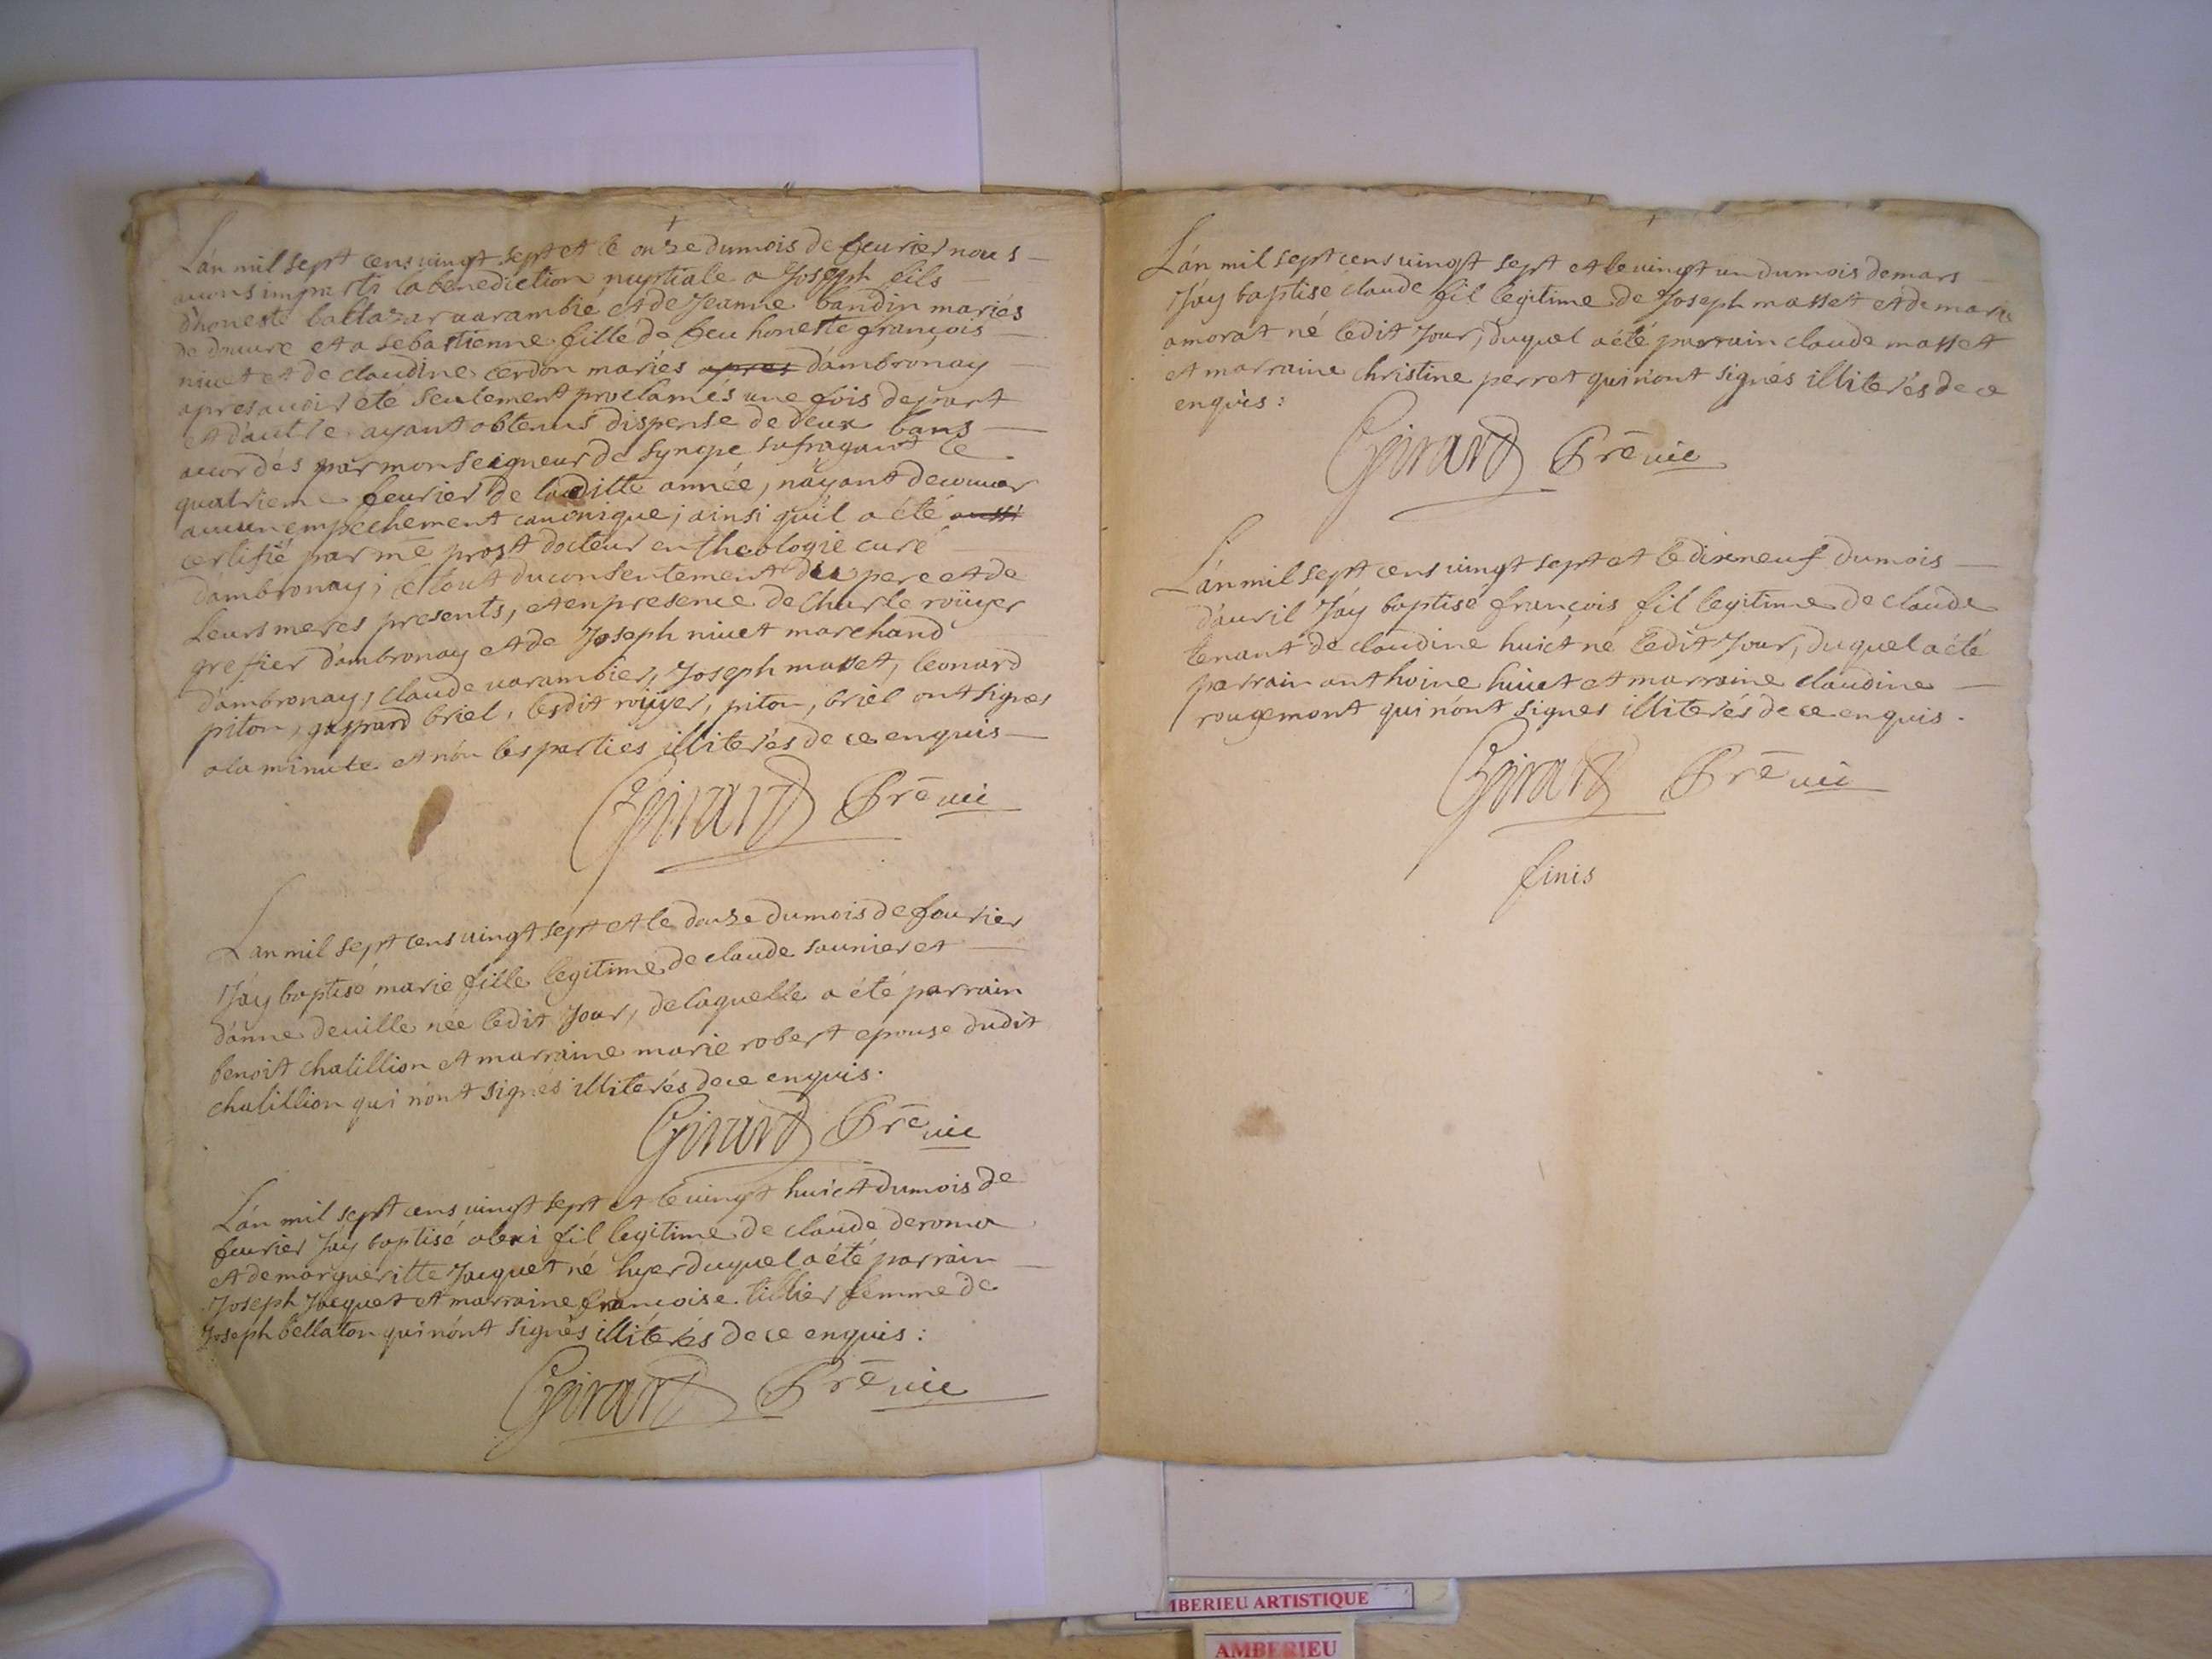 L'an mil sept cens vingt sept et le onze du mois de feurier nous
auons imparti la benediction nuptiale a Joseph fils
d'honeste baltazar uarambié et de Jeanne bandin mariés
de douure et a sebastienne fille de feu honeste françois
niuet et de claudine cerdon mariés apres d'ambronay
apres auoir été seulement proclamés une fois de part
et d'autre ayant obtenus dispense de deux bans
accordés par mon seigneur de synope sufragant ce
quatrieme feurier de laditte année, n'ayant decouuer
aucun empechement canonique; ainsi qu'il a été aussi
certifié par mē prost docteur en theologie curé
d'ambronay; le tout du consentement du pere et de
Leurs meres presents, et en presence de Charle roüyer
grefier d'ambronay et de Joseph niuet marchand
d'ambronay, claude uarambier, Joseph masset, leonard
piton, gaspard briel, lesdit roüyer, piton, briel ont signes
a la minute et non les parties illiterés de ce enquis
Girard Prē uic
L'an mil sept cens uingt sept et le douze du mois de feurier
J'ay baptisé marie fille legitime de claude saunier et
d'anne deuille née ledit Jour, de laquelle a été parrain
benoit chatillion et marraine marie robert epouse dudit
chatillion qui n'ont signés illiterés de ce enquis.
Girard Prē uic
L'an mil sept cens uingt sept et le uingt huict du mois de
feurier J'ay baptisé alexi fil legitime de claude deroma
et de marguéritte Jacquet né hyer duquel a été parrain
Joseph Jacquet et marraine françoise tillier femme de
Joseph bellaton qui n'ont signés illiterés de ce enquis:
Girard Prē uic
L'an mil sept cens uingt sept et le uingt un du mois de mars
J'ay baptisé claude fil legitime de Joseph masset et de marie
amorat né ledit Jour, duquel a été parrain claude masset
et marraine christine perret qui n'ont signés illiterés de ce
enquis:
Girard Prē uic
L'an mil sept cens uingt sept et le dixneuf du mois
d'auril J'ay baptisé françois fil legitime de claude
tenant de claudine huict né ledit Jour, duquel a été
parrain anthoine huict et marraine claudine
rougemont qui n'ont signes illiterés de ce enquis.
Girard Prē uic
finis
MBERIEU ARTISTIQUE
AMBERIEU